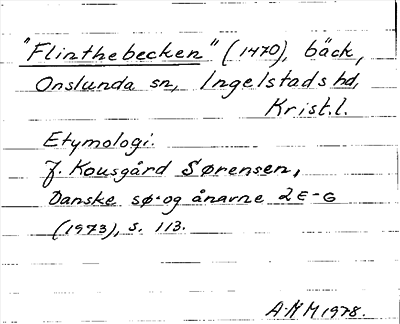 "Flinthebecken" (1470), bäck,
Onslunda sn, Ingelstads hd,
Krist.l.
Etymologi:
J. Kousgård Sørensen,
Danske sø- og ånavne 2 E-G
(1973), s. 113.
AMM 1978.